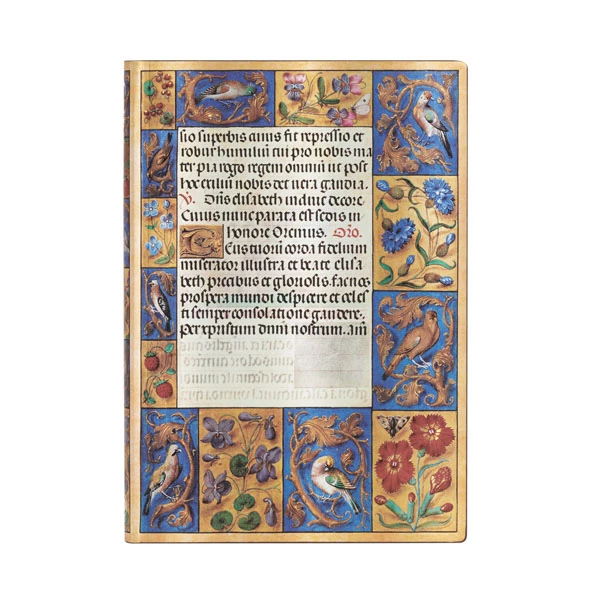 sio superbis cuius fit repressio et
robur humiliū tu pro nobis ma
ter pia rego regem omniū ut post
hoc exiliū nobis det vera gaudia.
V. Dn̄s elisabeth induit decore.
Cuius nunc parata est sedis in
honore Oremus. Oro.
Deus tuorū corda fidelium
miserator illustra et beate elisa
beth precibus et gloriosis, fac nos
prospera mundi despicere et celes
ti semper consolatione gaudere.
Per xpristum dnm̄ nostrum. am̄